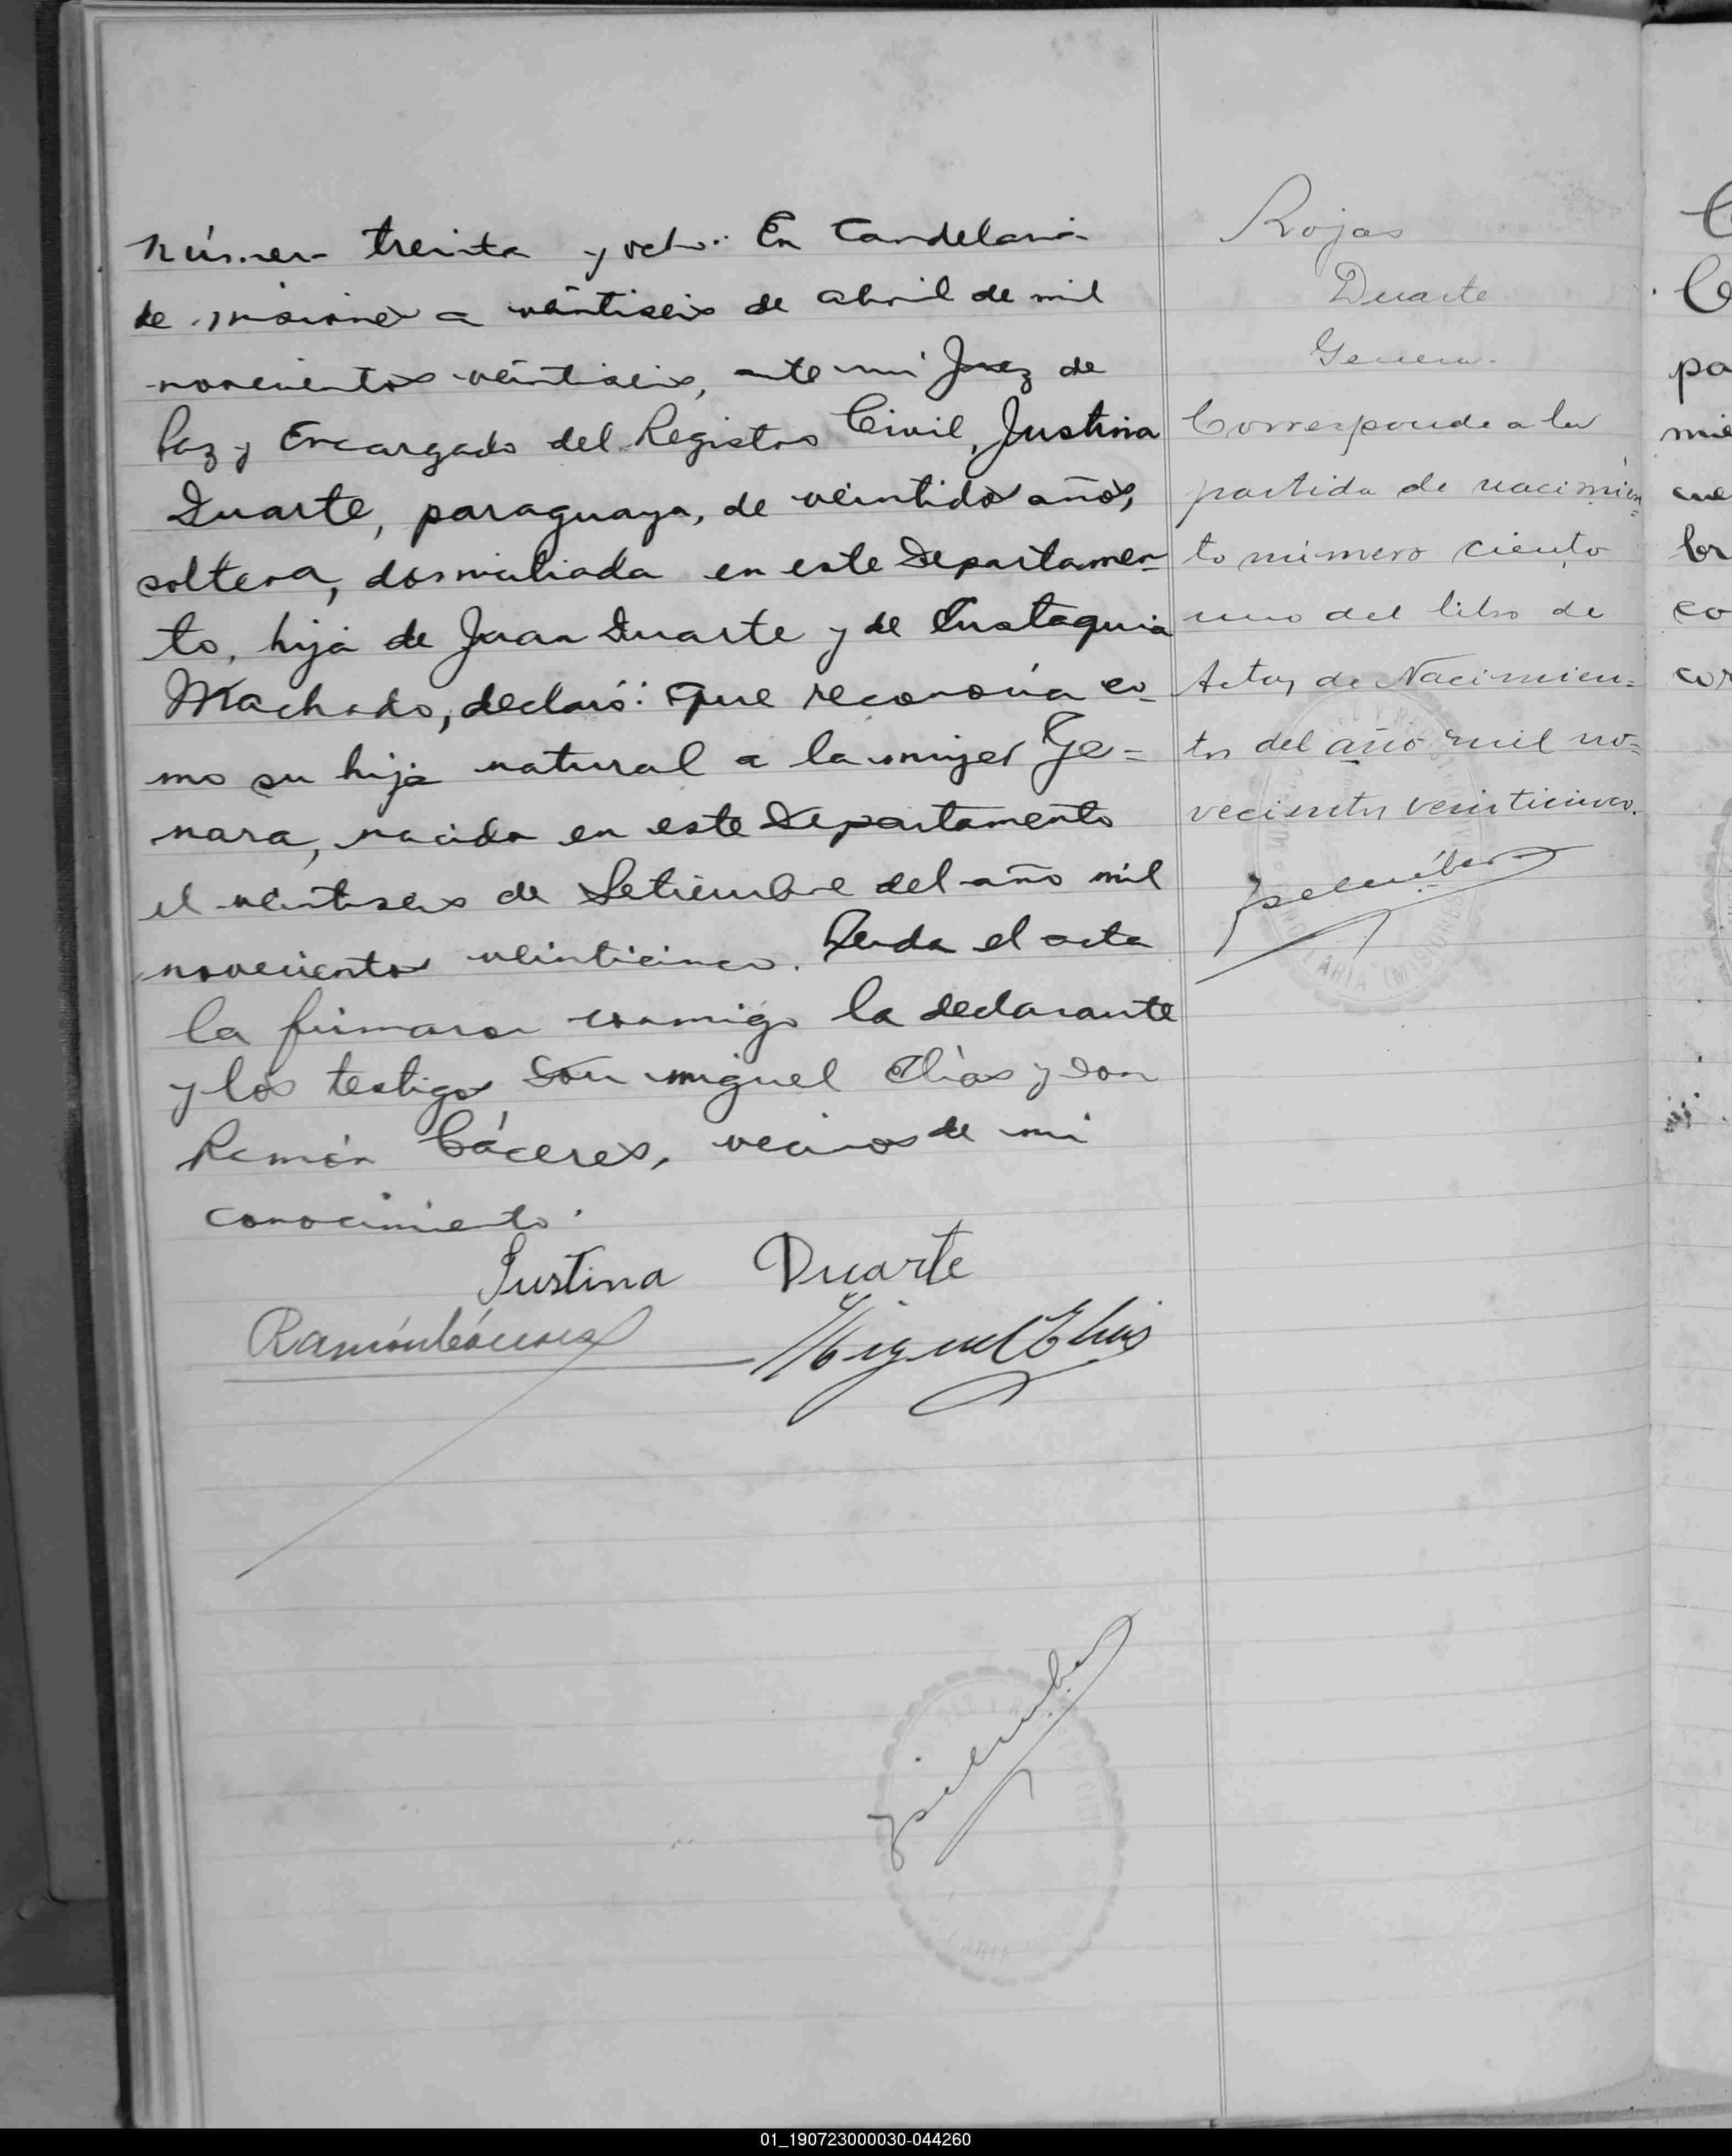 Número treinta y ocho: En Candelaria
de Misiones a veintiseis de abril de mil
novecientos veintiseis, ante mi Juez de
Paz y Encargado del Registro Civil, Justina
Duarte, paraguaya, de veintidos años,
soltera, domiciliada en este Departamen-
to, hija de Juan Duarte y de Eustaquia
Machado, declaró: Que reconocía co-
mo su hija natural a la mujer Ge=
nara, nacida en este Departamento
el veintiseis de Setiembre del año mil
novecientos veinticinco. Leida el acta
la firmaron conmigo la declarante
y los testigos Don Miguel Elías y Don
Ramón Cáceres, vecinos de mi
conocimiento.
Justina Duarte
Ramón Cáceres Miguel Elias
Rojas
Duarte
Genera
Corresponde a la
partida de nacimien=
to número ciento
uno del libro de
Actas de Nacimien=
tos del año mil no=
vecientos veinticinco.
C
C
po
mie
cue
lor
co
cor
01_190723000030-044260